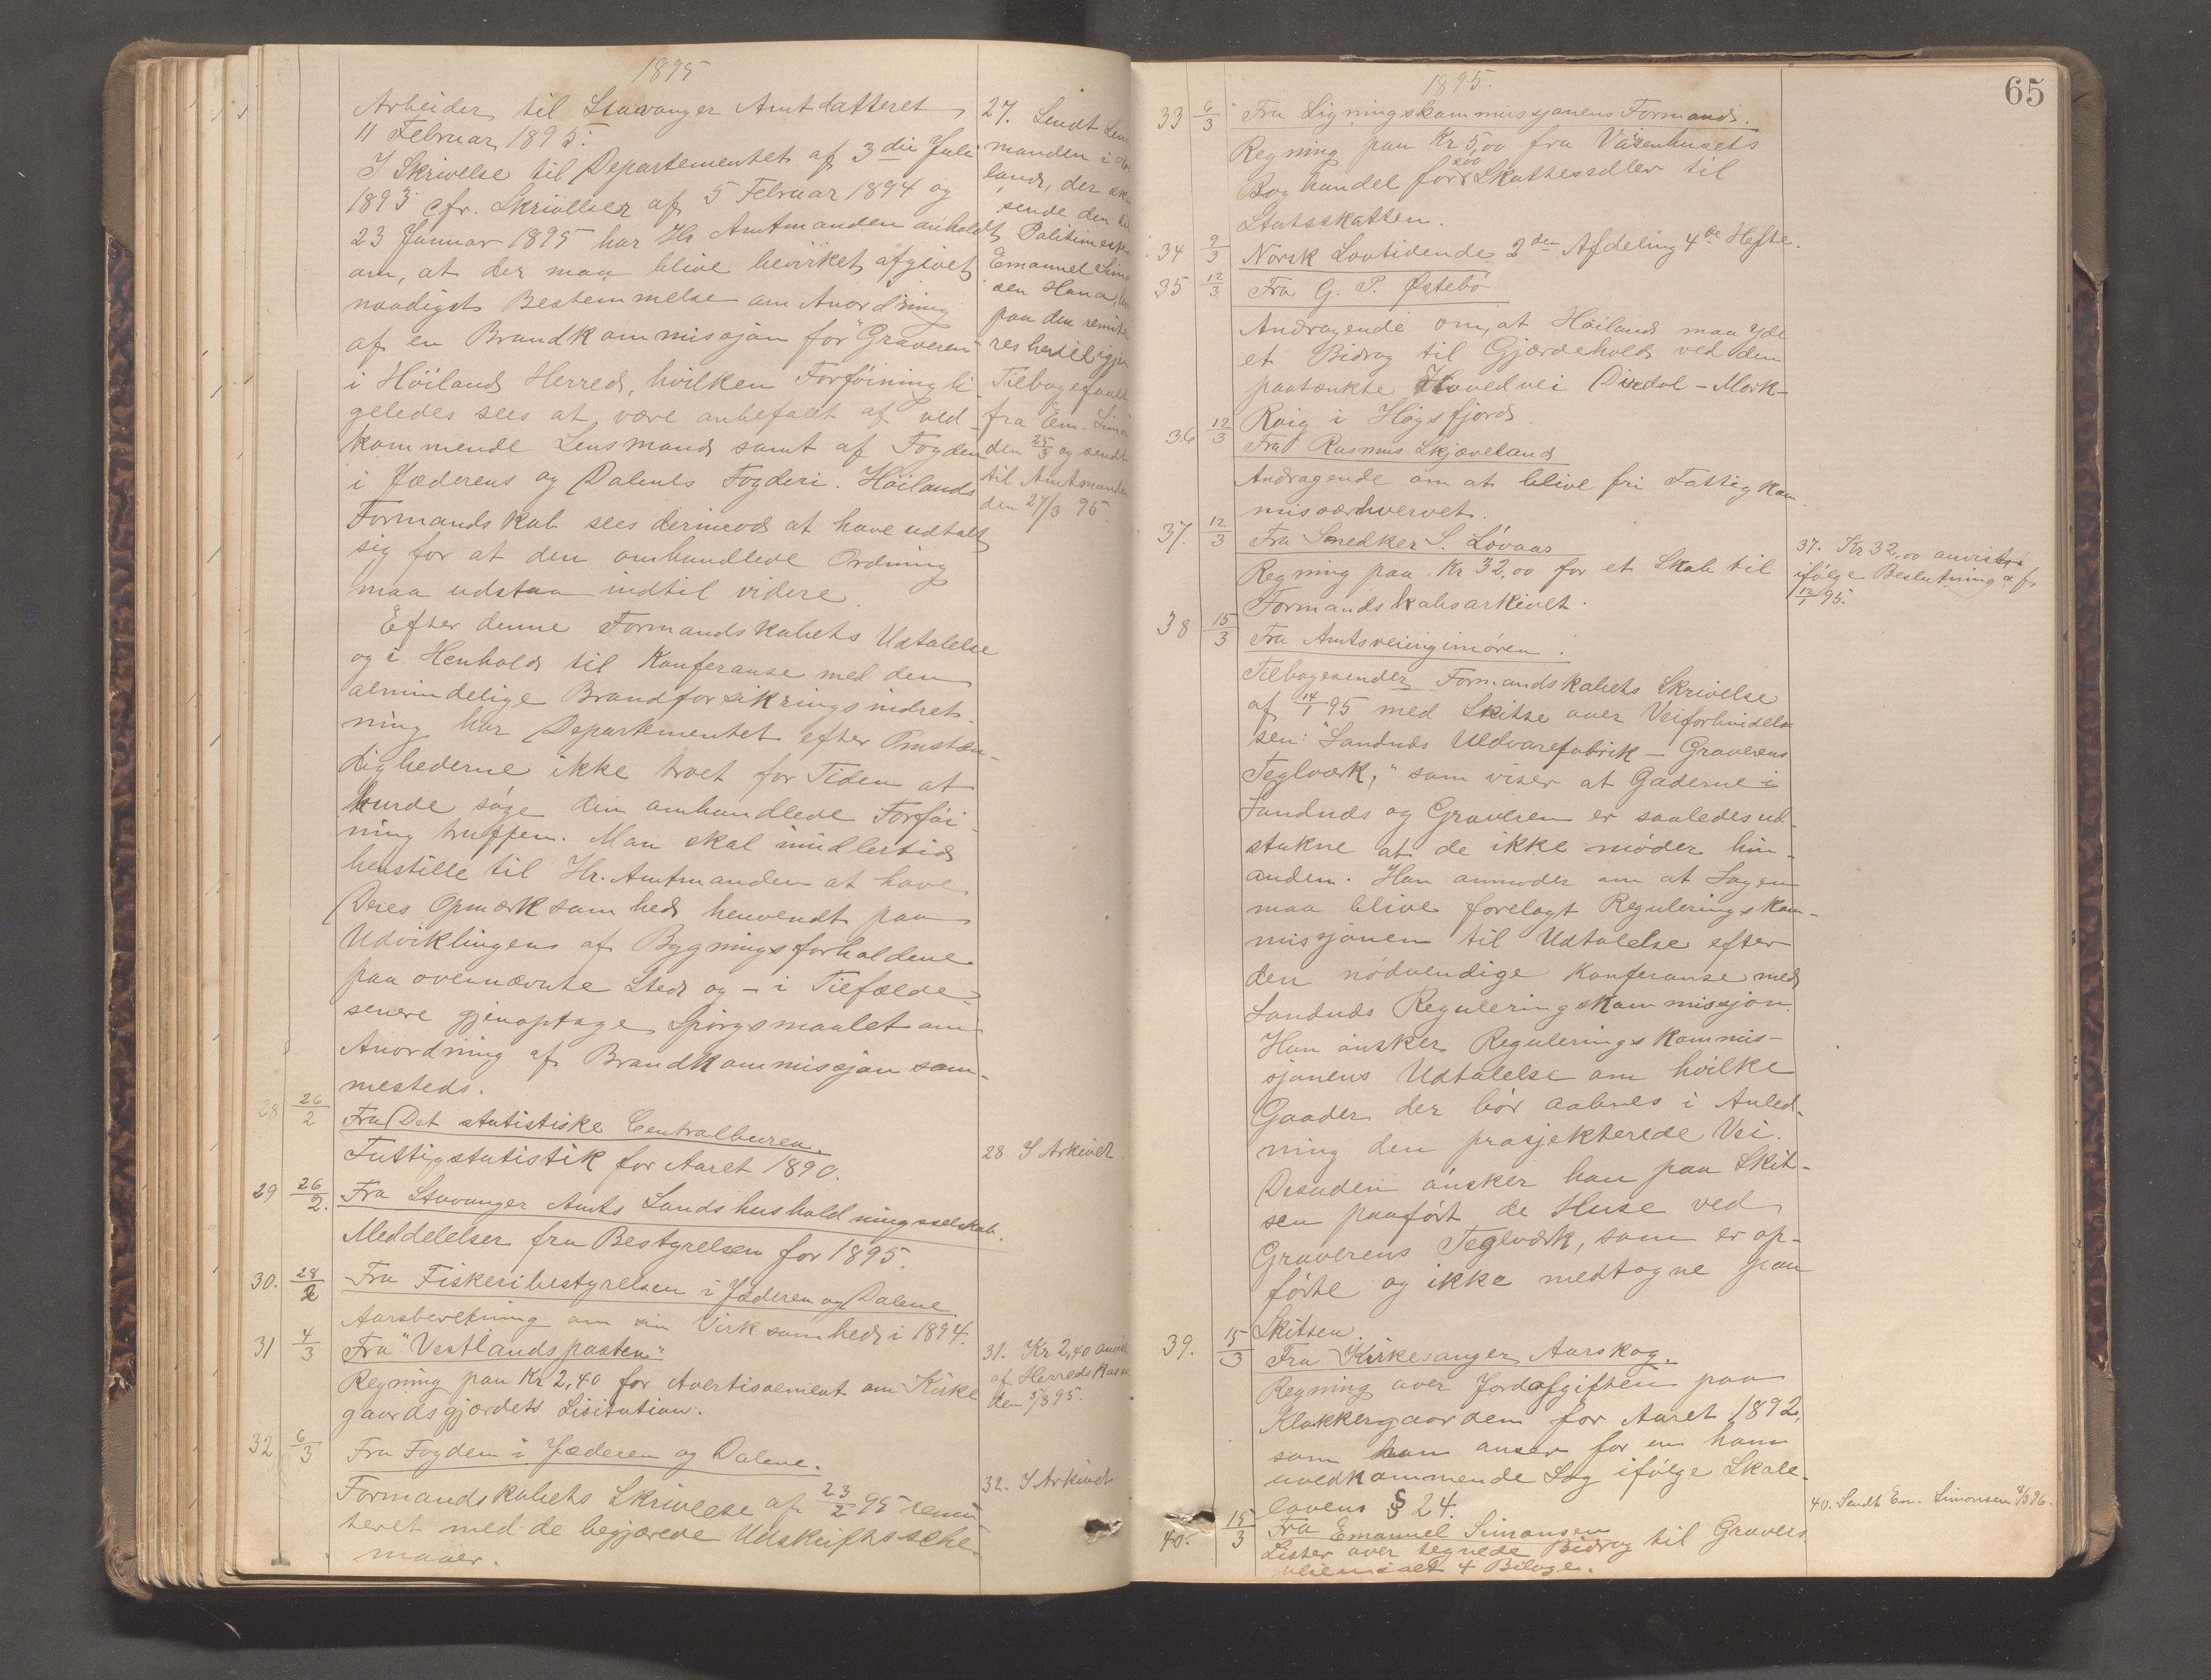 1895
Arbeider til Stavanger Amt datteret
11 Februar 1895:
I Skrivelse til Departementet af 3die Juli
1893 cfr. Skrivelser af 5 Februar 1894 og
23 Januar 1895 har Hr Amtmanden anholdt
om, at der maa blive bevirket afgivet
naadigst Bestemmelse om Anordning
af en Brandkommissjon for "Graveren"
i Höiland Herred, hvilken Forföining li-
geledes sees at være anbefalet af ved-
kommende Lensmand samt af Fogden
i Jæderens og Dalenes Fogderi. Höilands
Formandskab sees derimod at have udtalt
sig for at den omhandlede Ordning
maa udstaa indtil videre.
Efter denne Formandskabets Udtalelse
og i Henhold til Konferanse med den
almindelige Brandforsikringsindret-
ning har Departementet efter Omstæn-
dighederne ikke troet for Tiden at
burde söge den omhandlede Forföi-
ning truffen. Man skal imidlertid
henstille til Hr. Amtmanden at have
Deres Opmærksomhed henvendt paa
Udviklingen af Bygningsforholdene
paa ovennævnte Sted og – i Tilfælde –
senere gjenoptage Spörgsmaalet om
Anordning af Brandkommissjon sam-
mesteds.
28 26/2 Fra Det statistiske Centralbureau.
Fattigstatistik for Aaret 1890.
29 26/2. Fra Stavanger Amts Landhusholdningsselskab.
Meddelelser fra Bestyrelsen for 1895.
30. 28/2 Fra Fiskeribestyrelsen i Jæderen og Dalene
Aarsberetning om sin Virksomhed i 1894.
31 4/3 Fra "Vestlandsposten"
Regning paa Kr 2,40 for Avertissement om Kirke
gaardsgjærdets Lisitation.
32 6/3 Fra Fogden i Jæderen og Dalene.
Formandskabets Skrivelse af 23/2 95 remit
teret med de begjærede Udskriftssche-
maer.
27. Sendt Lens
manden i
land, der ska
sende den til
Politimester
Emanuel Simo
sen Hana,
paa den remitte
res hertil igjen
Tilbagefaaet
fra Em. Simon
den 25/3 og sendt
til Amtmanden
den 27/3 95.
28 I Arkivet.
31. Kr 2,40 anvist
af Herredskassen
den 5/3 95.
32. I Arkivet
65
1895.
33 6/3 Fra Ligningskommissjonens Formand.
Regning paa Kr 5,00 fra Vaisenhusets
Boghandel for 500 Skattesedler til
Statsskatten.
34 9/3 Norsk Lovtidende 2den Afdeling 4de Hefte.
35 12/3 Fra G. P. Østebö
Andragende om, at Höiland maa yde
et Bidrag til Gjærdehold ved den
paatænkte Hovedvei Dirdal – Mork-
Röig i Högsfjord.
36 12/3 Fra Rasmus Skjæveland
Andragende om at blive fri Fattigkom
misærhvervet.
37. 12/3 Fra Snedker S. Lövaas
Regning paa Kr 32,00 for et Skab til
Formandskabsarkivet.
38 15/3 Fra Amtsveiinginiören.
Tilbagesender Formandskabets Skrivelse
af 14/1 95 med Skitse over Veiforbindel-
sen: "Sandnes Uldvarefabrik – Graverens
Teglværk," som viser at Gaderne i
Sandnes og Graveren er saaledes ud-
stukne at de ikke möder hin-
anden. Han anmoder om at Sagen
maa blive forelagt Reguleringskom-
missjonen til Udtalelse efter
den nödvendige Konferanse med
Sandnes Reguleringskommissjon.
Han önsker Reguleringskommis-
sjonens Udtalelse om hvilke
Gaader der bör aabnes i Anled-
ning den prosjekterede Vei.
Desuden önsker han paa Skit-
sen paafört de Huse ved
Graverens Teglværk, som er op-
förte og ikke medtagne paa
Skitsen.
39. 15/3 Fra Kirkesanger Aarskog.
Regning over Jordafgiften paa
Klokkergaarden for Aaret 1892,
som han anser for en ham
uvedkommende Sag ifölge Skole-
lovens § 24.
40. 15/3 Fra Emanuel Simonsen
Lister over tegnede Bidrag til Gravers-
veien ialt 4 Bilage.
37. Kr 32,00 anvist
ifölge Beslutning af
12/1 95.
40. Sendt Em. Simonsen 4/3 96.